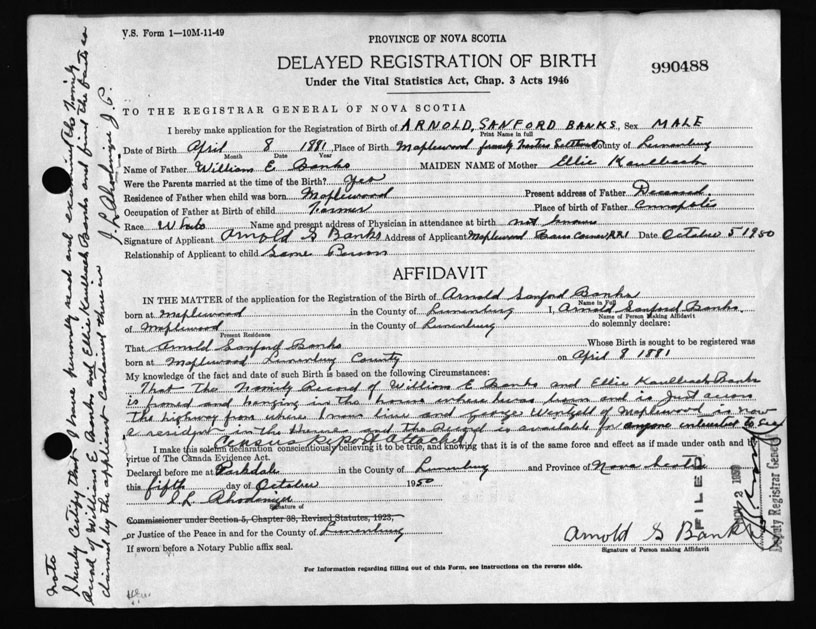 V.S. Form 1—10M-11-49
PROVINCE OF NOVA SCOTIA
DELAYED REGISTRATION OF BIRTH
990488
Under the Vital Statistics Act, Chap. 3 Acts 1946
TO THE REGISTRAR GENERAL OF NOVA SCOTIA
I hereby make application for the Registration of Birth of ARNOLD, SANFORD BANKS, Sex MALE
Print Name in full
Date of Birth April 8 1881, Place of Birth Maplewood County of Lunenburg
Month Date Year
Name of Father William E Banks MAIDEN NAME of Mother Ellie Kaulback
Were the Parents married at the time of the Birth? Yes
Residence of Father when child was born Maplewood Present address of Father Deceased.
Occupation of Father at Birth of child Farmer Place of birth of Father Annapolis
Race White Name and present address of Physician in attendance at birth not known
Signature of Applicant Arnold S Banks Address of Applicant Maplewood Corner, RR1 Date October 5 1950
Relationship of Applicant to child Same Person
AFFIDAVIT
IN THE MATTER of the application for the Registration of Birth of Arnold Sanford Banks
Name in Full
born at Maplewood in the County of Lunenburg I, Arnold Sanford Banks.
Name of Person Making Affidavit
of Maplewood in the County of Lunenburg do solemnly declare:
Present Residence
That Arnold Sanford Banks Whose Birth is sought to be registered was
born at Maplewood Lunenburg County on April 8 1881
My knowledge of the fact and date of such Birth is based on the following Circumstances:
That The Family Record of William E Banks and Ellie Kaulback Banks
is framed and hanging in the house where I was born and is Just across
The highway from where I now live and George Wentzell of Maplewood is now
a resident in the House and the Record is available for anyone interested to See
(Census Report Attached)
I make this solemn declaration conscientiously believing it to be true, and knowing that it is of the same force and effect as if made under oath and by
virtue of The Canada Evidence Act.
Declared before me at Parkdale in the County of Lunenburg and Province of Nova Scotia
this fifth day of October 1950
J. L. Rhodenizer
Signature of
Commissioner under Section 5, Chapter 38, Revised Statutes, 1923,
or Justice of the Peace in and for the County of Lunenburg
If sworn before a Notary Public affix seal.
Arnold S Banks
Signature of Person making Affidavit
For Information regarding filling out of this Form, see instructions on the reverse side.
FILED
NOV 2 1950
Deputy Registrar General
Note
I hereby Certify that I have personally read and examined the Family
Record of William E Banks and Ellie Kaulback Banks and find the facts as
claimed by the applicant contained there in
J. L. Rhodenizer J. P.